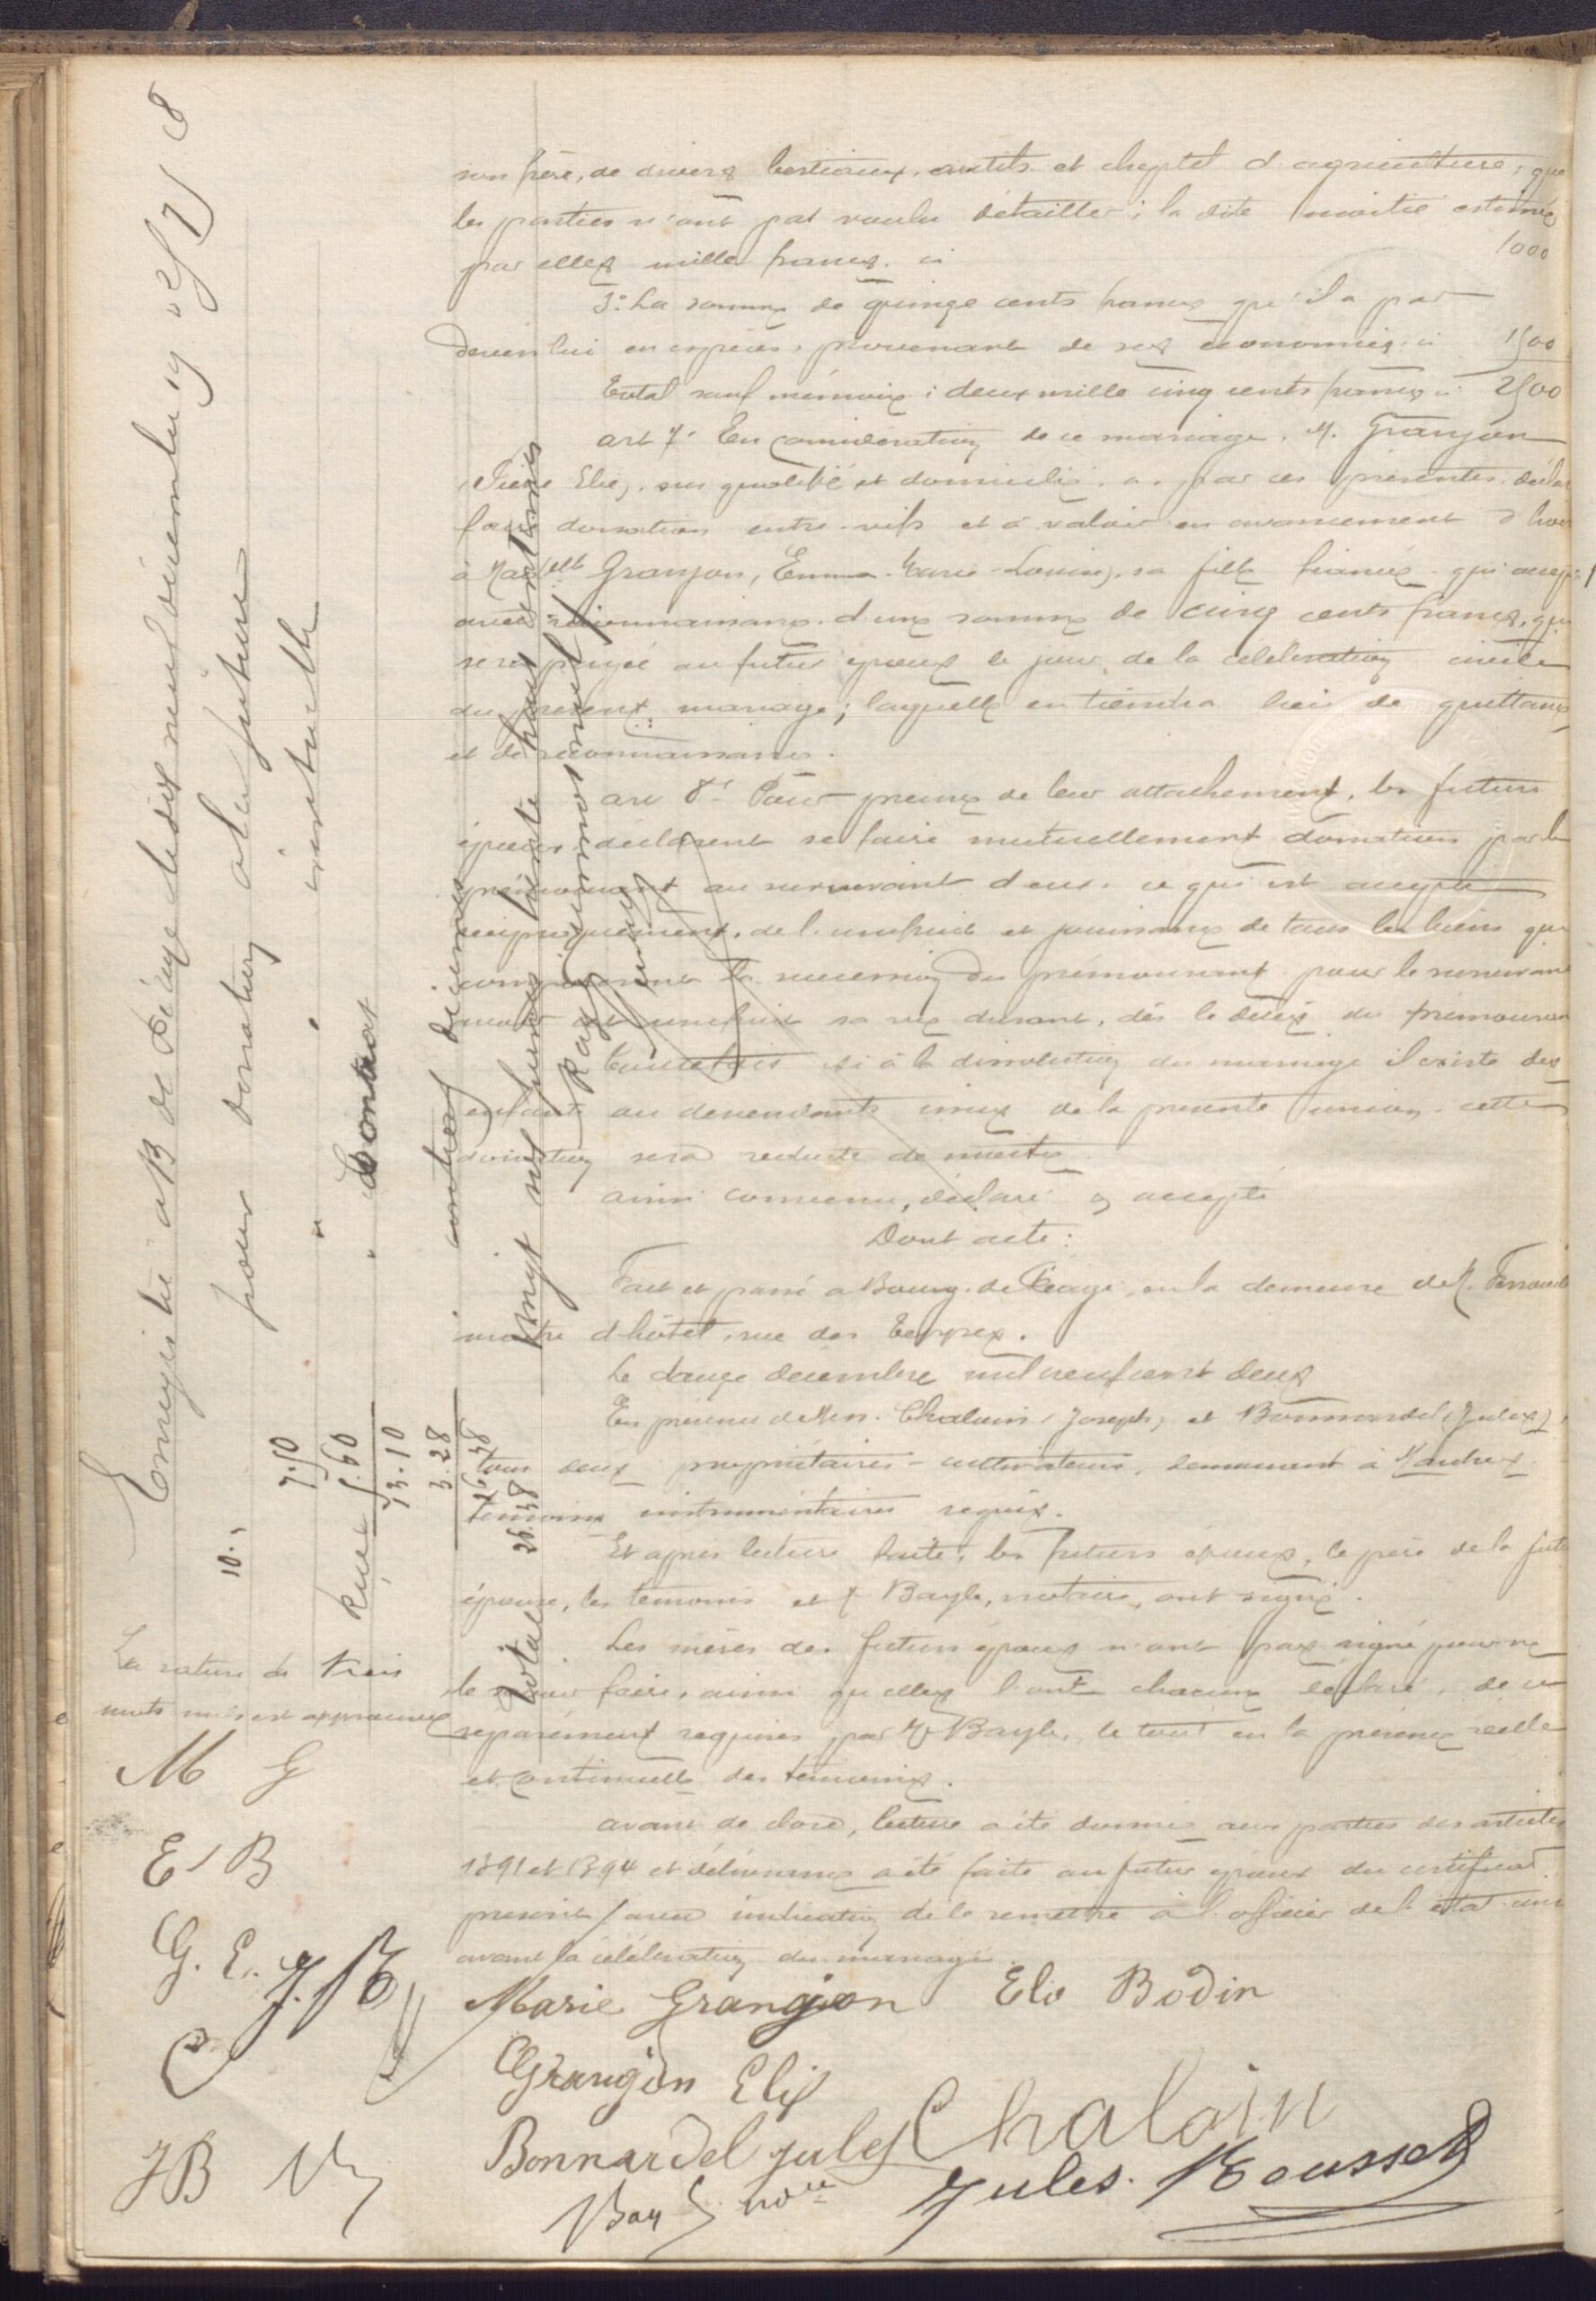 son frère, de divers bestiaux, outils et cheptel d'agriculture, que
les parties n'ont pas voulu détailler; la dite moitié estimée
par elles mille francs. ci 1000
3° La somme de quinze cents francs qu'il a par
devers lui en espèces, provenant de ses économies. ci 1500
Total sauf mémoire: deux mille cinq cents francs ci 2500
art 7° En considération de ce mariage, M. Granjon
(Pierre Elie), sus qualifié et domicilié, a, par ces présentes, déclaré
faire donation entre vifs et à valoir en avancement d'hoirie
à Mad<sup>elle</sup> Granjon, (Emma-Marie-Louise), sa fille fiancée qui accepte
avec reconnaissance, d'une somme de cinq cents francs, qui
sera payée au futur époux le jour de la célébration civile
du présent mariage; laquelle en tiendra lieu de quittance
et de reconnaissance.
art 8° Pour preuve de leur attachement, les futurs
époux déclarent se faire mutuellement donation par le
prémourant au survivant d'eux, ce qui est accepté
réciproquement, de l'usufruit et jouissance de tous les biens qui
composeront la succession du prémourant pour le survivant
en usufruit sa vie durant, dès le décès du prémourant
Toutefois si à la dissolution du mariage il existe des
enfants ou descendants issus de la présente union, cette
donation sera réduite de moitié.
ainsi convenu, déclaré & accepté
Dont acte:
Fait et passé à Bourg-de-Péage, en la demeure de M.
maître d'hôtel, rue des
Le douze décembre mil neuf cent deux
En présence de Mrs. Chalain (Joseph) et Bonnardel (Jules),
tous deux propriétaires-cultivateurs, demeurant à
témoins instrumentaires requis.
Et après lecture faite, les futurs époux, le père de la future
épouse, les témoins et Me Bayle, notaire, ont signé.
Les mères des futurs époux n'ont pas signé pour ne
le savoir faire, ainsi qu'elles l'ont chacune déclaré, de ce
séparément requises par Me Bayle, le tout en la présence réelle
et continuelle des témoins.
avant de clore, lecture a été donnée aux parties des articles
1391 et 1394 et délivrance a été faite au futur époux du certificat
prescrit, avec indication de le remettre à l'officier de l'état civil
avant la célébration du mariage.
Marie Grangeon Elie Bodin
Grangeon Elie
Bonnardel jules Chalain
Jules Rousset
Bay nore
Enregistré à B de Péage le dix neuf décembre 19 02
pour donation à la future 10.
" " éventuelle 7.50
" Contrat
5.60
13.10
3.28
16.38
Total 26.38
contient décimes
vingt six francs trente huit centimes
La rature de trois
mots nuls est approuvée
M G
E B
G. E. J. R
J B